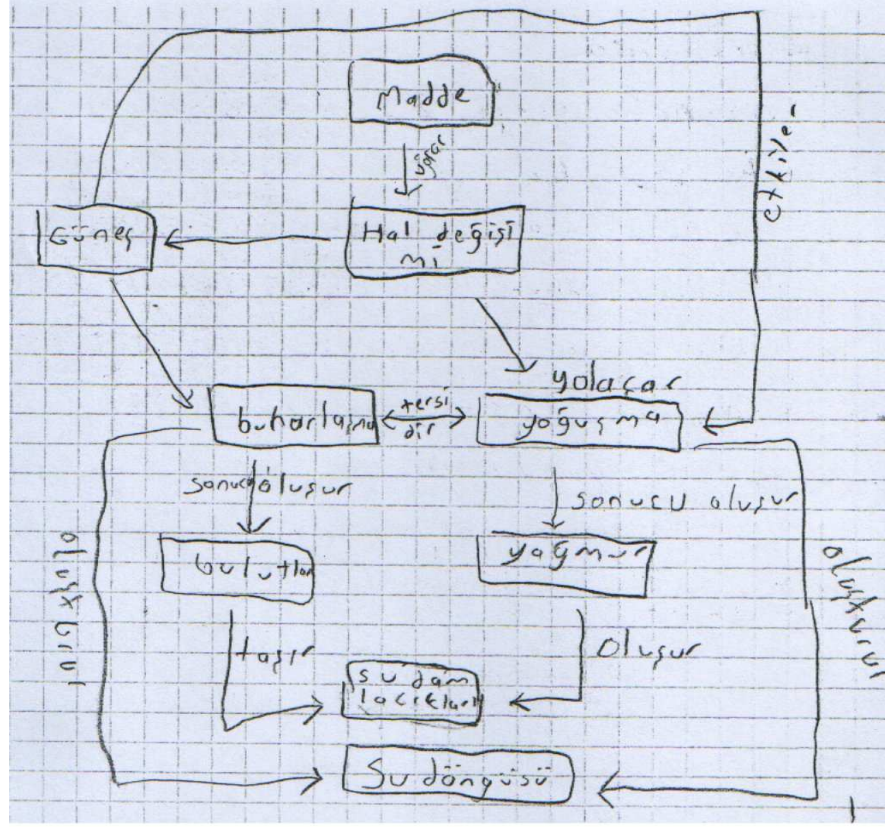 Madde
uğrar
etkiler
Güneş
Hal değişi
mi
yolaçar
buharlaşma
tersi
dir
yoğuşma
sonucu oluşur
sonucu oluşur
bulutlar
yağmur
oluşturur
oluşturur
taşır
oluşur
su dam
lacıkları
Su döngüsü